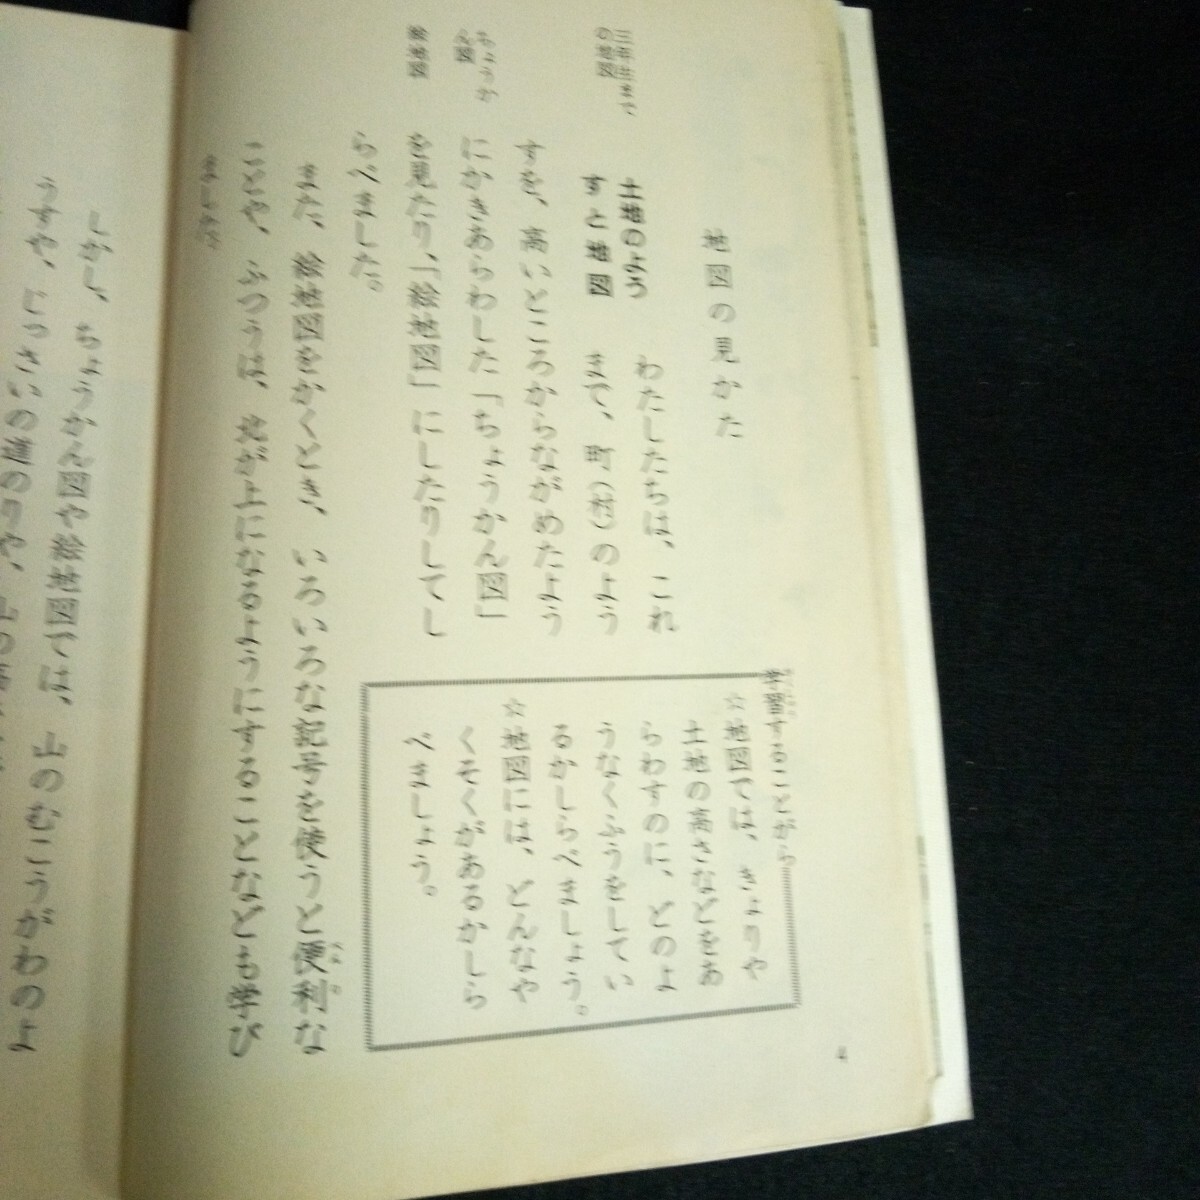 地図の見かた
三年生まで
の地図
土地のよう
すと地図
わたしたちは、これ
まで、町(村)のよう
すを、高いところからながめたよう
ちょうか
ん図
にかきあらわした「ちょうかん図」
絵地図
を見たり、「絵地図」にしたりしてし
らべました。
また、絵地図をかくとき、いろいろな記号を使うと便利な
ことや、ふつうは、北が上になるようにすることなども学び
ました。
学習することがら
☆地図では、きょりや
土地の高さなどをあ
らわすのに、どのよ
うなくふうをしてい
るかしらべましょう。
☆地図には、どんなや
くそくがあるかしら
べましょう。
4
しかし、ちょうかん図や絵地図では、山のむこうがわのよ
うすや、じっさいの道のりや、山の高